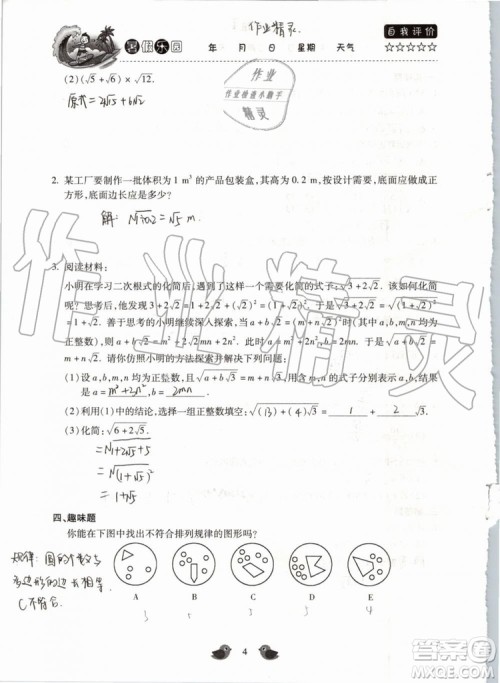 暑假乐园 年 月 日 星期 天气 自我评价
作业精灵
☆☆☆☆☆
(2)(√5+√6)×√12.
原式=2√15+6√2
作业
作业检查小助手
精灵
2. 某工厂要制作一批体积为 1 m³ 的产品包装盒,其高为 0.2 m,按设计需要,底面应做成正
方形,底面边长应是多少?
解:√1÷0.2=√5 m.
作业精灵
3. 阅读材料:
小明在学习二次根式的化简后,遇到了这样一个需要化简的式子:√3+2√2. 该如何化简
呢?思考后,他发现 3+2√2=1+2√2+(√2)²=(1+√2)². 于是 √3+2√2=√(1+√2)²=
1+√2. 善于思考的小明继续深入探索,当 a+b√2=(m+n√2)² 时(其中 a,b,m,n 均为正
整数),则 a+b√2=m²+2mn√2+2n². 此时,a=m²+2n²,b=2mn,于是,√a+b√2=√(m+n√2)²
=m+n√2. 请你仿照小明的方法探索并解决下列问题:
(1)设 a,b,m,n 均为正整数,且 √a+b√3=m+n√3,用含 m,n 的式子分别表示 a,b,结果
是 a=m²+3n²,b=2mn
(2)利用(1)中的结论,选择一组正整数填空:√(13)+(4)√3=1+2√3
(3)化简:√6+2√5.
=√1+2√5+5
=√(1+√5)²
=1+√5
四、趣味题
你能在下图中找出不符合排列规律的图形吗?
规律:圆的个数与
多边形的边长相等
C不符合.
A B C D E
3 3 4
4